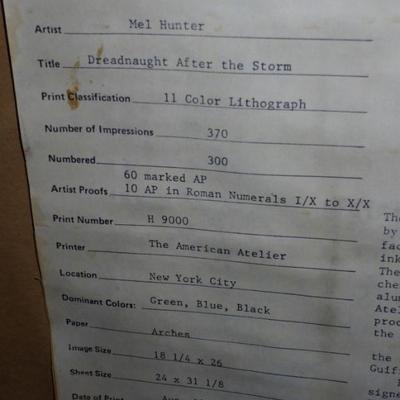 Artist Mel Hunter
Title Dreadnaught After the Storm
Print Classification 11 Color Lithograph
Number of Impressions 370
Numbered 300
60 marked AP
Artist Proofs 10 AP in Roman Numerals I/X to X/X
Print Number H 9000
Printer The American Atelier
Location New York City
Dominant Colors: Green, Blue, Black
Paper Arches
Image Size 18 1/4 x 26
Sheet Size 24 x 31 1/8
Date of Print
The
by
fac
ink
The
che
alum
Atel
prod
the
the
Guilf
signe